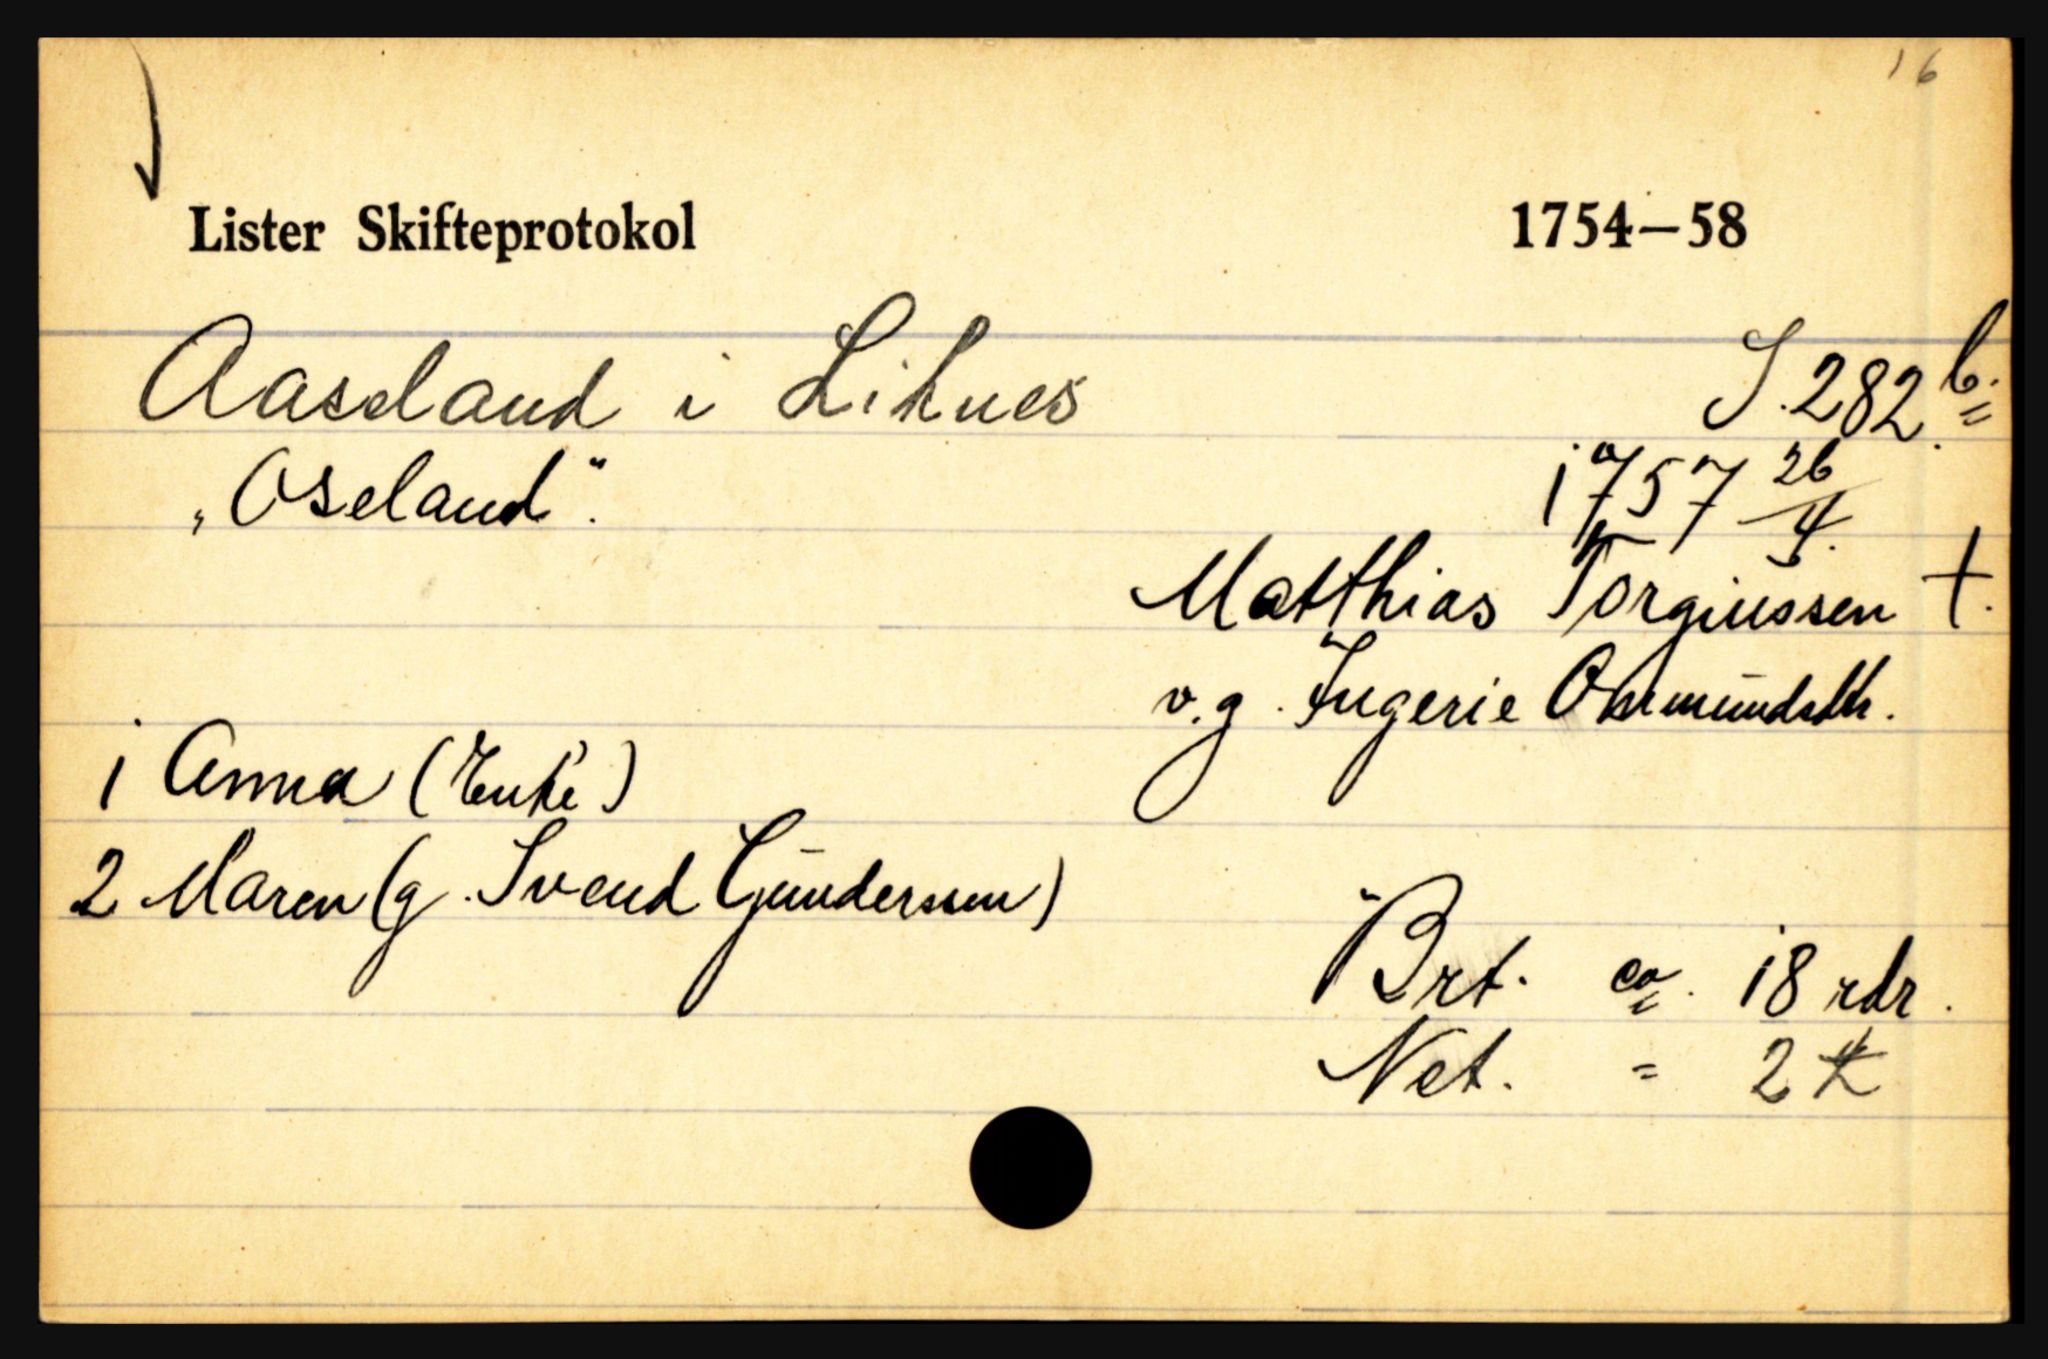 16
Lister Skifteprotokol 1754–58
Aaseland i Liknes S. 282 b.
„Oseland". 1757 26/4.
Matthias Torgiussen †.
v.g. Ingerie Omundsdtr.
1 Anna (Enke)
2 Maren (g. Svend Gunderssen)
Brt. ca. 18 rdr.
Net. = 2